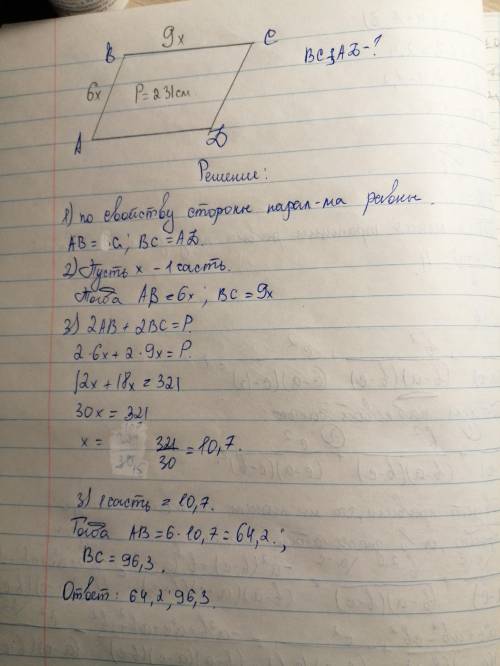 9x
B C
BC; АД-?
6x P=231см
A Д
Решение:
1) по свойству стороны парал-ма равны.
AB= C; BC=АД.
2) Пусть x - 1 часть.
Тогда AB=6x; BC=9x
3) 2AB+2BC=P.
2·6x+2·9x=P.
12x+18x=321
30x=321
x= 321/30 =10,7.
3) 1 часть = 10,7.
Тогда AB=6·10,7=64,2.;
BC=96,3.
Ответ: 64,2; 96,3.